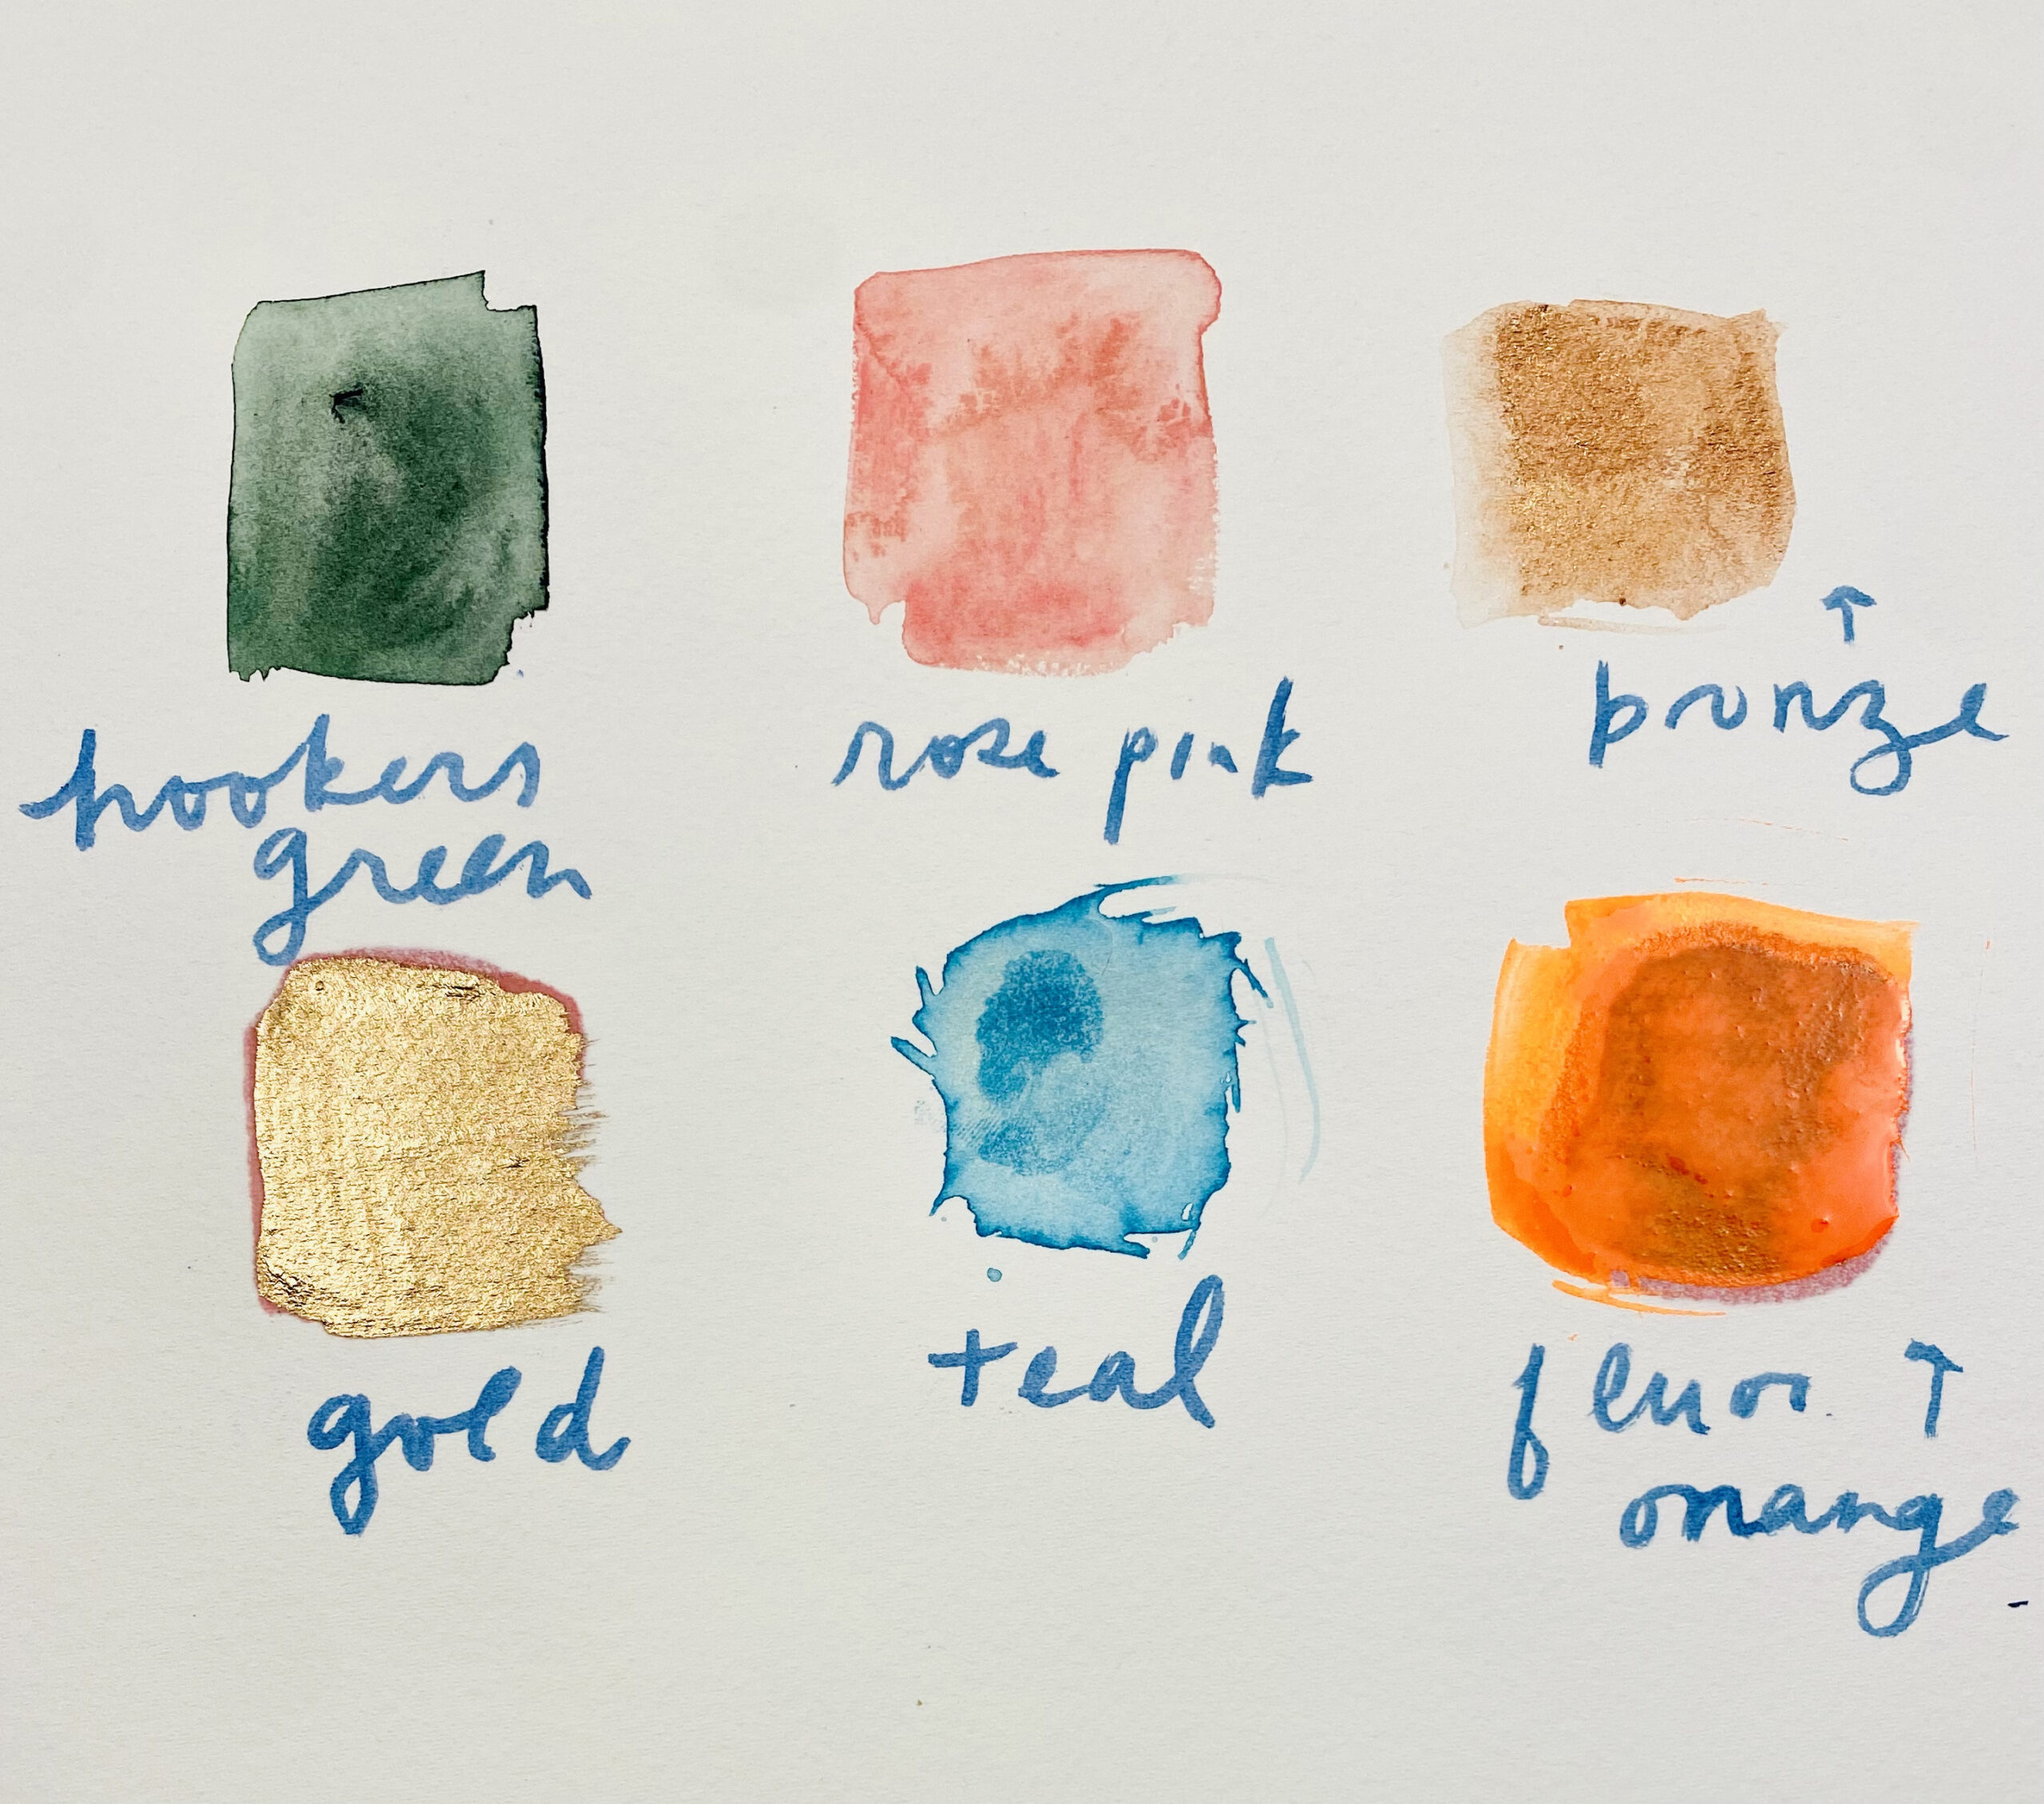 hookers
green
rose pink
↑
bronze
gold
teal
fluor ↑
orange